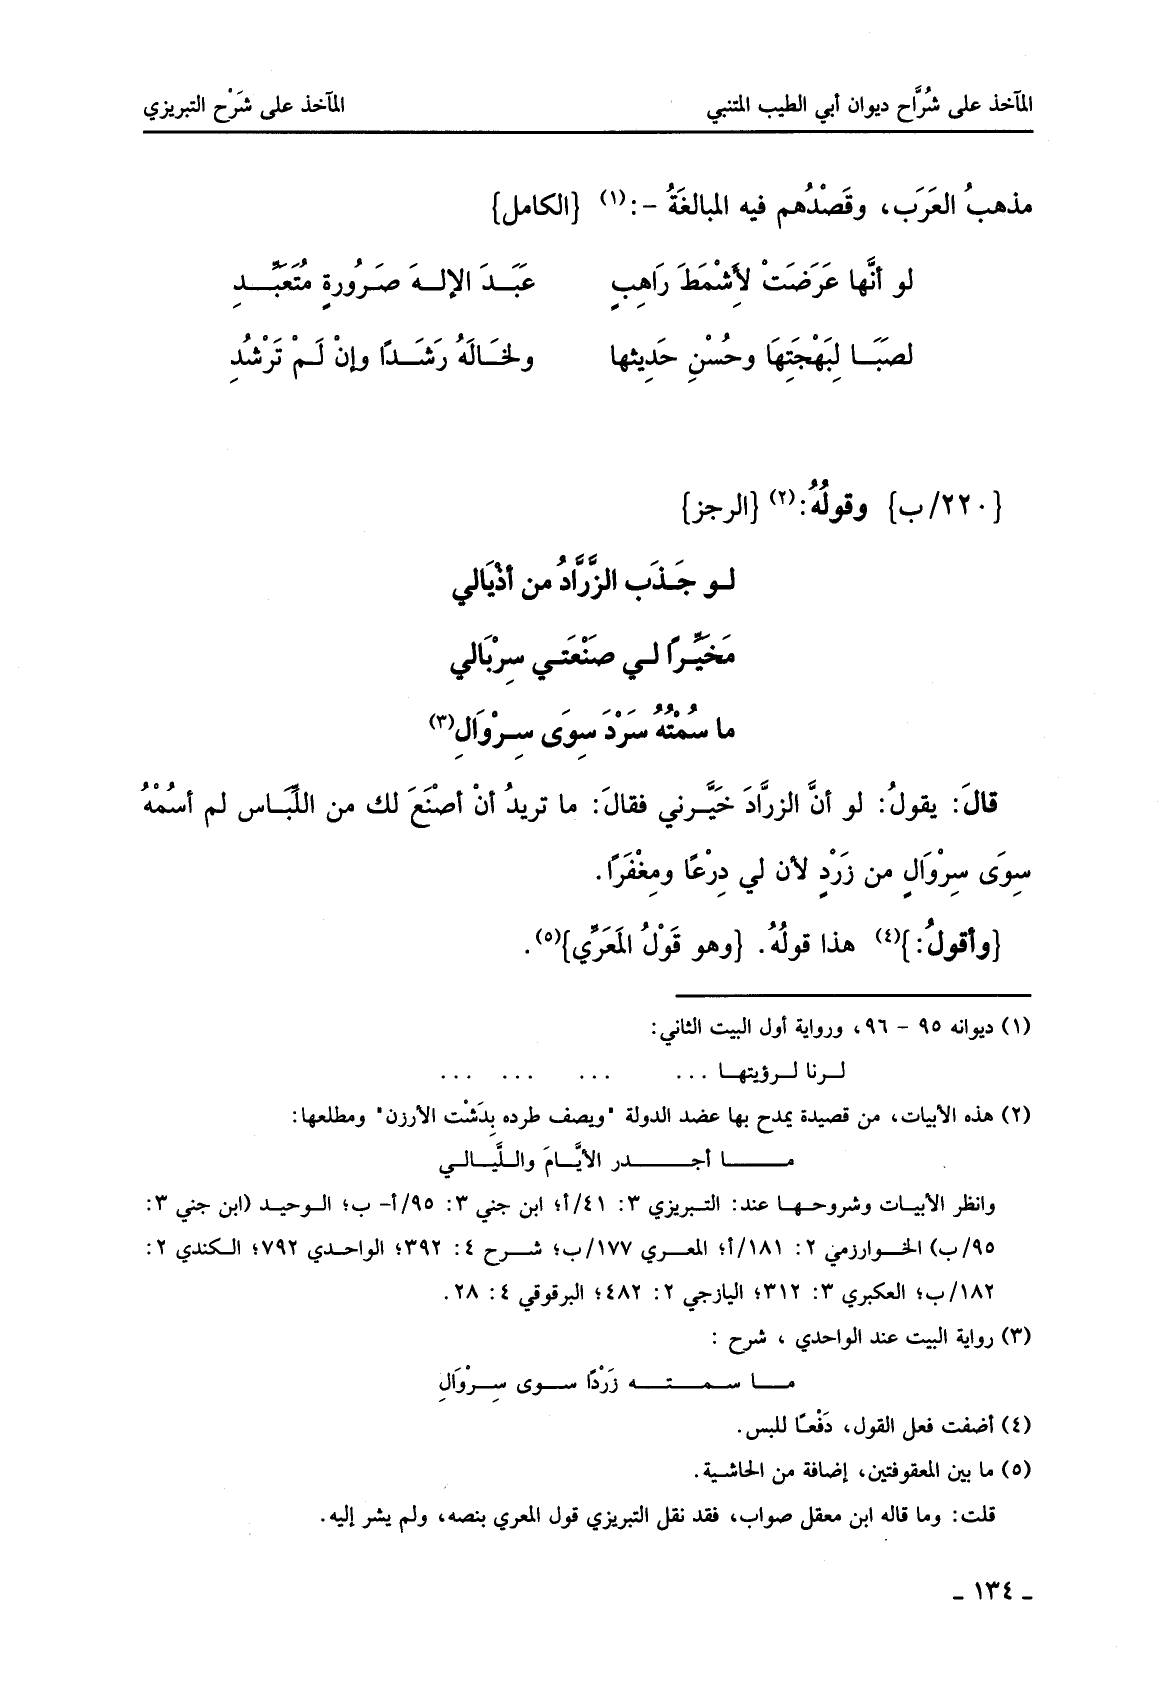 المآخذ على شُرَّاح ديوان أبي الطيب المتنبي المآخذ على شَرْح التبريزي
مذهبُ العَرَب، وقَصْدُهم فيه المبالغَةُ -:(١) {الكامل}
لو أنَّها عَرَضَتْ لأَشْمَطَ رَاهِبٍ عَبَدَ الإلـهَ صَرُورةٍ مُتَعَبِّـدِ
لصَبَـا لِبَهْجَتِهَا وحُسْنِ حَدِيثها ولخَالَهُ رَشَـدًا وإنْ لَـمْ تَرْشُدِ
{٢٢٠/ب} وقولُهُ:(٢) {الرجز}
لـو جَـذَب الزَّرَّادُ من أذْيَالي
مَخَيِّـرًا لـي صَنْعَتـي سِرْبَالي
ما سُمْتُهُ سَرْدَ سِوَى سِـرْوَالِ(٣)
قالَ: يقولُ: لو أنَّ الزرَّادَ خَيَّرني فقالَ: ما تريدُ أنْ أصْنَعَ لك من اللِّبَاس لم أسُمْهُ
سِوَى سِرْوَالٍ من زَرْدٍ لأن لي دِرْعًا ومِغْفَرًا.
{وأقولُ:}(٤) هذا قولُهُ. {وهو قَوْلُ المَعَرِّي}(٥).
(١) ديوانه ٩٥ - ٩٦، ورواية أول البيت الثاني:
لـرنا لـرؤيتهـا ... ... ... ...
(٢) هذه الأبيات، من قصيدة يمدح بها عضد الدولة "ويصف طرده بِدَشْت الأرزن" ومطلعها:
مــا أجــدر الأيَّـامَ واللَّيـالـي
وانظر الأبيـات وشروحـها عند: التـبريزي ٣: ٤١/أ؛ ابن جني ٣: ٩٥/أ- ب؛ الـوحيـد (ابن جني ٣:
٩٥/ب) الخـوارزمي ٢: ١٨١/أ؛ المعـري ١٧٧/ب؛ شـرح ٤: ٣٩٢؛ الواحـدي ٧٩٢؛ الـكندي ٢:
١٨٢/ب؛ العكبري ٣: ٣١٢؛ اليازجي ٢: ٤٨٢؛ البرقوقي ٤: ٢٨.
(٣) رواية البيت عند الواحدي ، شرح :
مـا سـمـتـه زَرْدًا سـوى سِـرْوَالِ
(٤) أضفت فعل القول، دَفْعـًا للبس.
(٥) ما بين المعقوفتين، إضافة من الحاشية.
قلت: وما قاله ابن معقل صواب، فقد نقل التبريزي قول المعري بنصه، ولم يشر إليه.
- ١٣٤ -